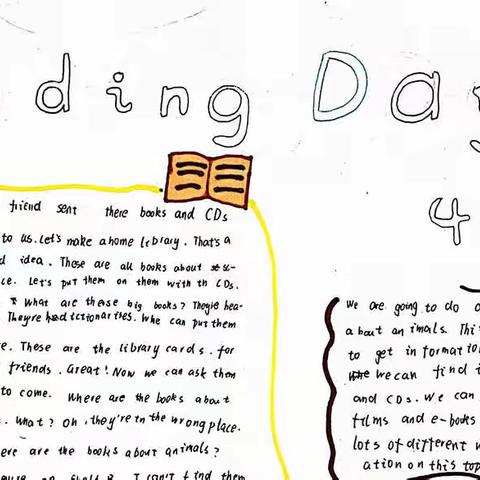 ding Day
4
friend sent there books and CDs
to us. Let's make a home library. That's a
d idea. These are all books about
ce. Let's put them on them with th CDs.
What are these big books? They're hea-
They're had ictionarities. Whe can put them
e. These are the library cards. for
friends. Great! Now we can ask them
to come. Where are the books about
. What? Oh, they're in the wrong place.
ere are the books about animals?
on shelf 8. I can't find them
We are going to do a
about animals. Thi
to get in formatio
we can find i
and CDs. We can
films and e-books
lots of different w
ation on this top